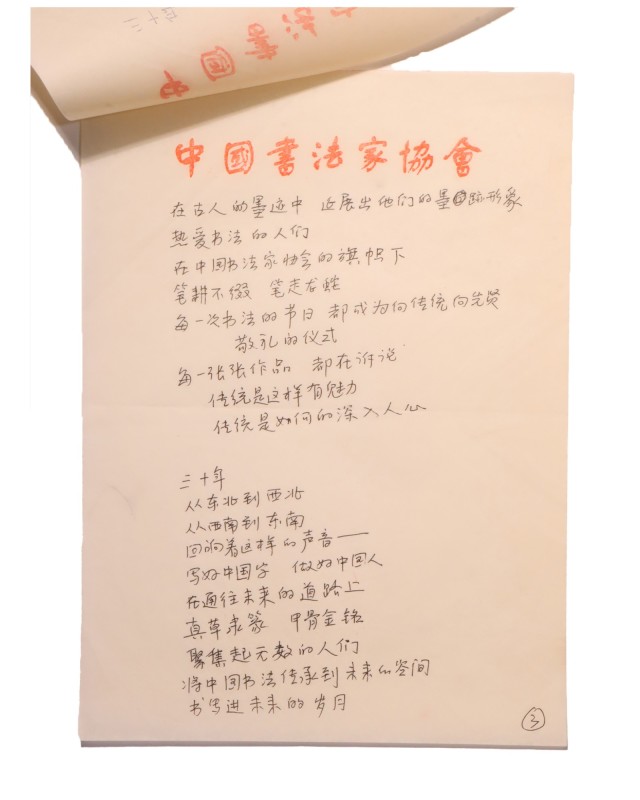 十三
中国書法
中國書法家協會
在古人的墨迹中 还展出他们的墨跡形象
热爱书法的人们
在中国书法家协会的旗帜下
笔耕不缀 笔走龙蛇
每一次书法的节日 都成为向传统向先贤
敬礼的仪式
每一张张作品 都在诉说
传统是这样有魅力
传统是如何的深入人心
三十年
从东北到西北
从西南到东南
回响着这样的声音——
写好中国字 做好中国人
在通往未来的道路上
真草隶篆 甲骨金铭
聚集起无数的人们
将中国书法传承到未来的空间
书写进未来的岁月
3